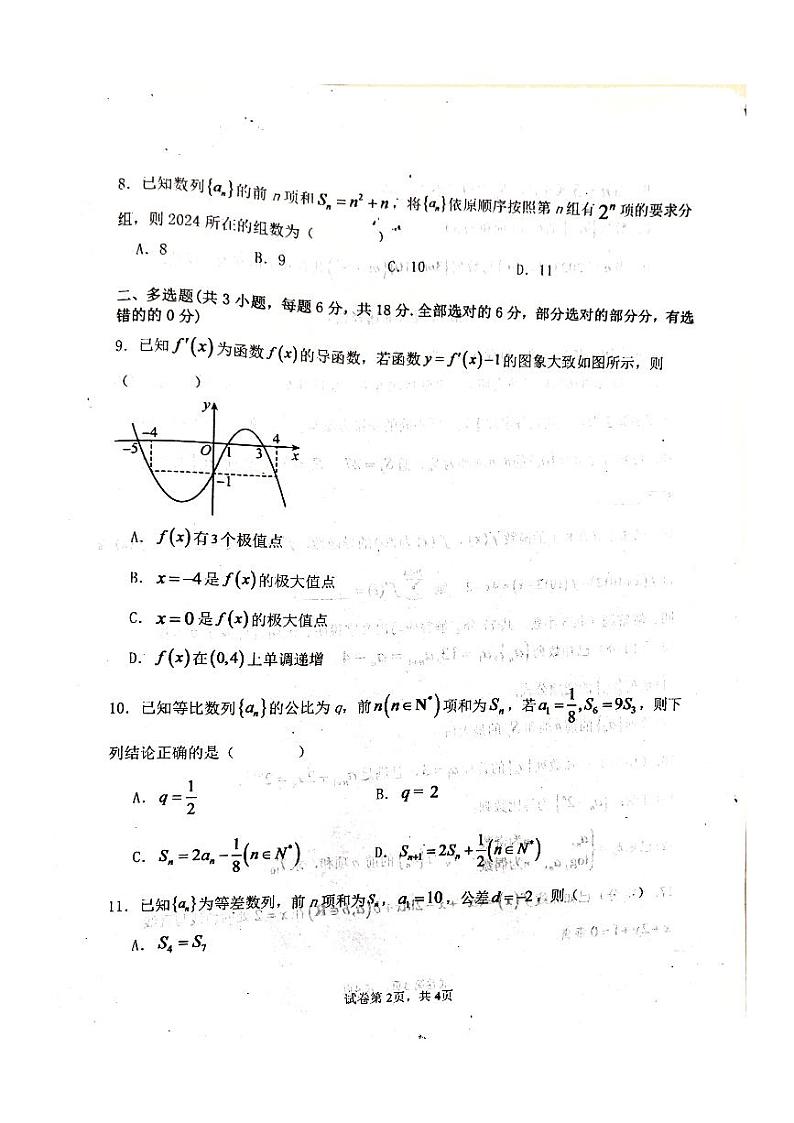 8. 已知数列{aₙ}的前 n 项和 Sₙ = n² + n, 将{aₙ}依原顺序按照第 n 组有 2ⁿ 项的要求分
组, 则 2024 所在的组数为 ( )
A. 8 B. 9 C. 10 D. 11
二、多选题(共 3 小题, 每题 6 分, 共 18 分. 全部选对的 6 分, 部分选对的部分分, 有选
错的的 0 分)
9. 已知 f′(x) 为函数 f(x) 的导函数, 若函数 y = f′(x)−1 的图象大致如图所示, 则
( )
y
−5 −4 O 1 3 4 x
−1
A. f(x) 有 3 个极值点
B. x = −4 是 f(x) 的极大值点
C. x = 0 是 f(x) 的极大值点
D. f(x) 在 (0,4) 上单调递增
10. 已知等比数列{aₙ}的公比为 q, 前 n(n∈N*) 项和为 Sₙ, 若 a₁ = 1/8, S₆ = 9S₃, 则下
列结论正确的是 ( )
A. q = 1/2 B. q = 2
C. Sₙ = 2aₙ − 1/8 (n∈N*) D. Sₙ₊₁ = 2Sₙ + 1/2 (n∈N*)
11. 已知{aₙ}为等差数列, 前 n 项和为 Sₙ, a₁ = 10, 公差 d = −2, 则 ( )
A. S₄ = S₇
试卷第 2页, 共 4页